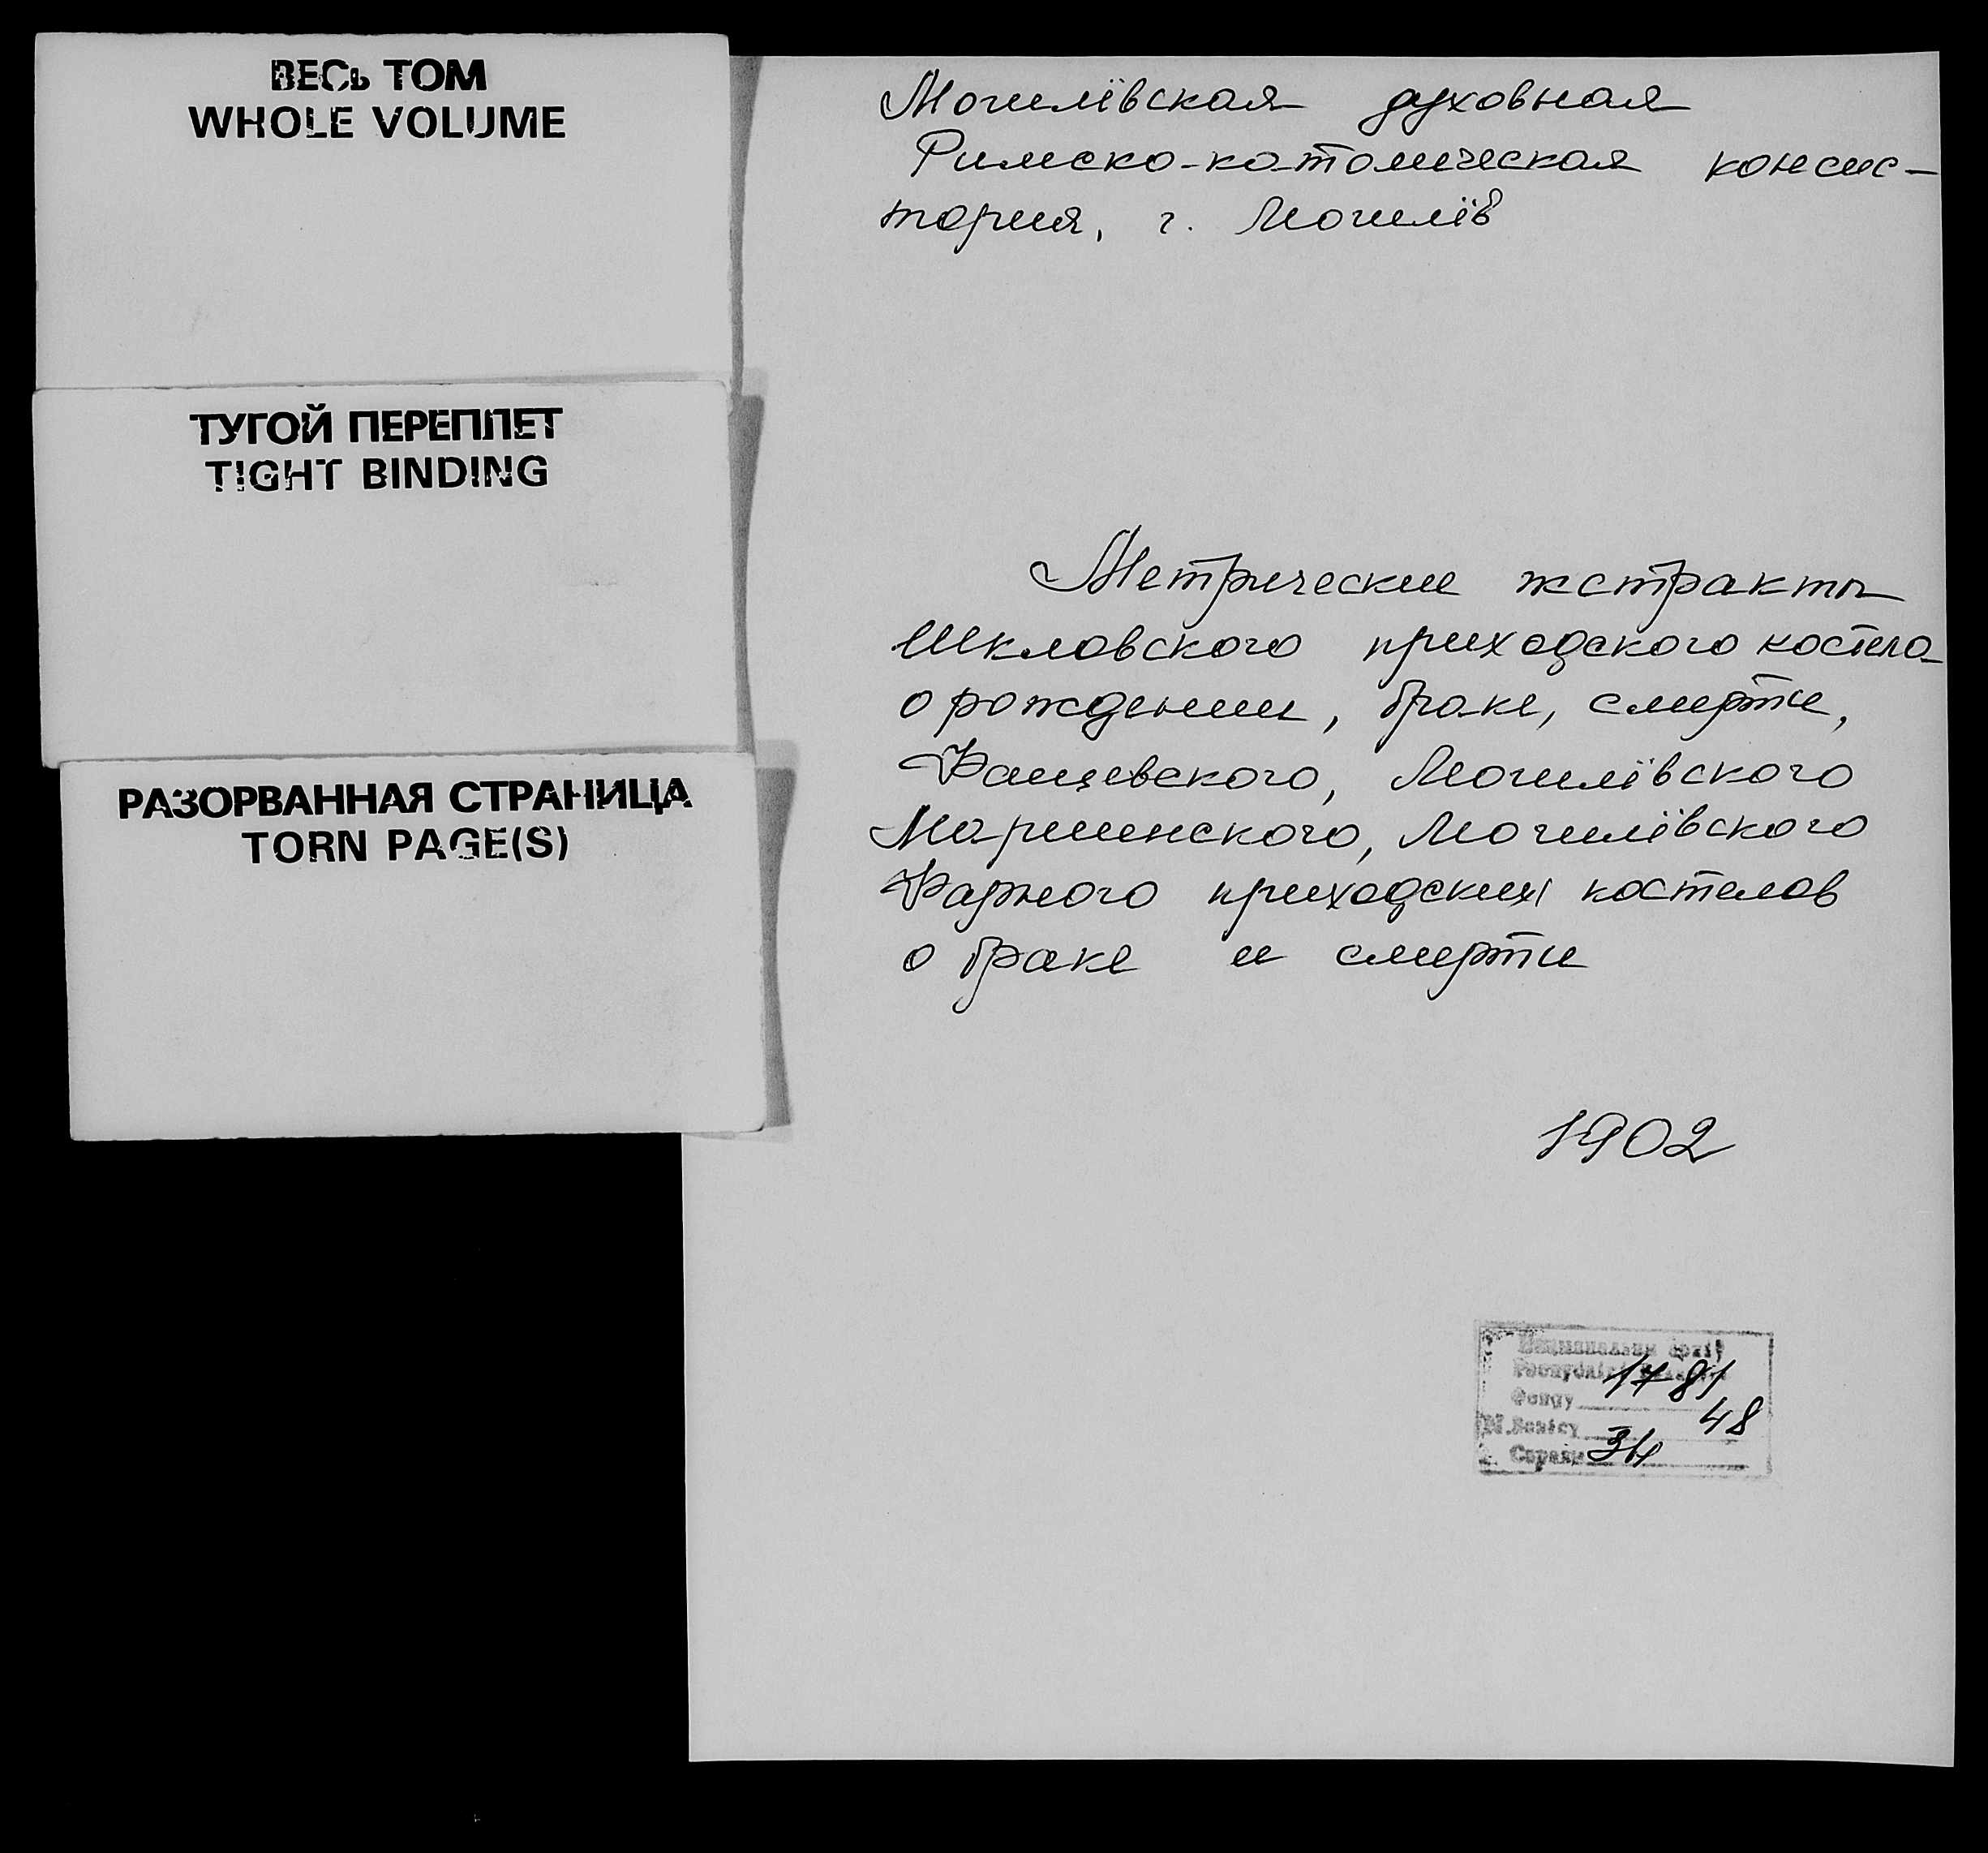 ВЕСЬ ТОМ
WHOLE VOLUME
ТУГОЙ ПЕРЕПЛЕТ
TIGHT BINDING
РАЗОРВАННАЯ СТРАНИЦА
TORN PAGE(S)
Могилёвская духовная
Римско-католическая консис-
тория, г. Могилёв
Метрические экстракты
Шкловского приходского костела
о рождении, браке, смерти,
Фащевского, Могилёвского
Мариинского, Могилёвского
Фарного приходских костелов
о браке и смерти
1902
Фонду 1781
48
Справы 34